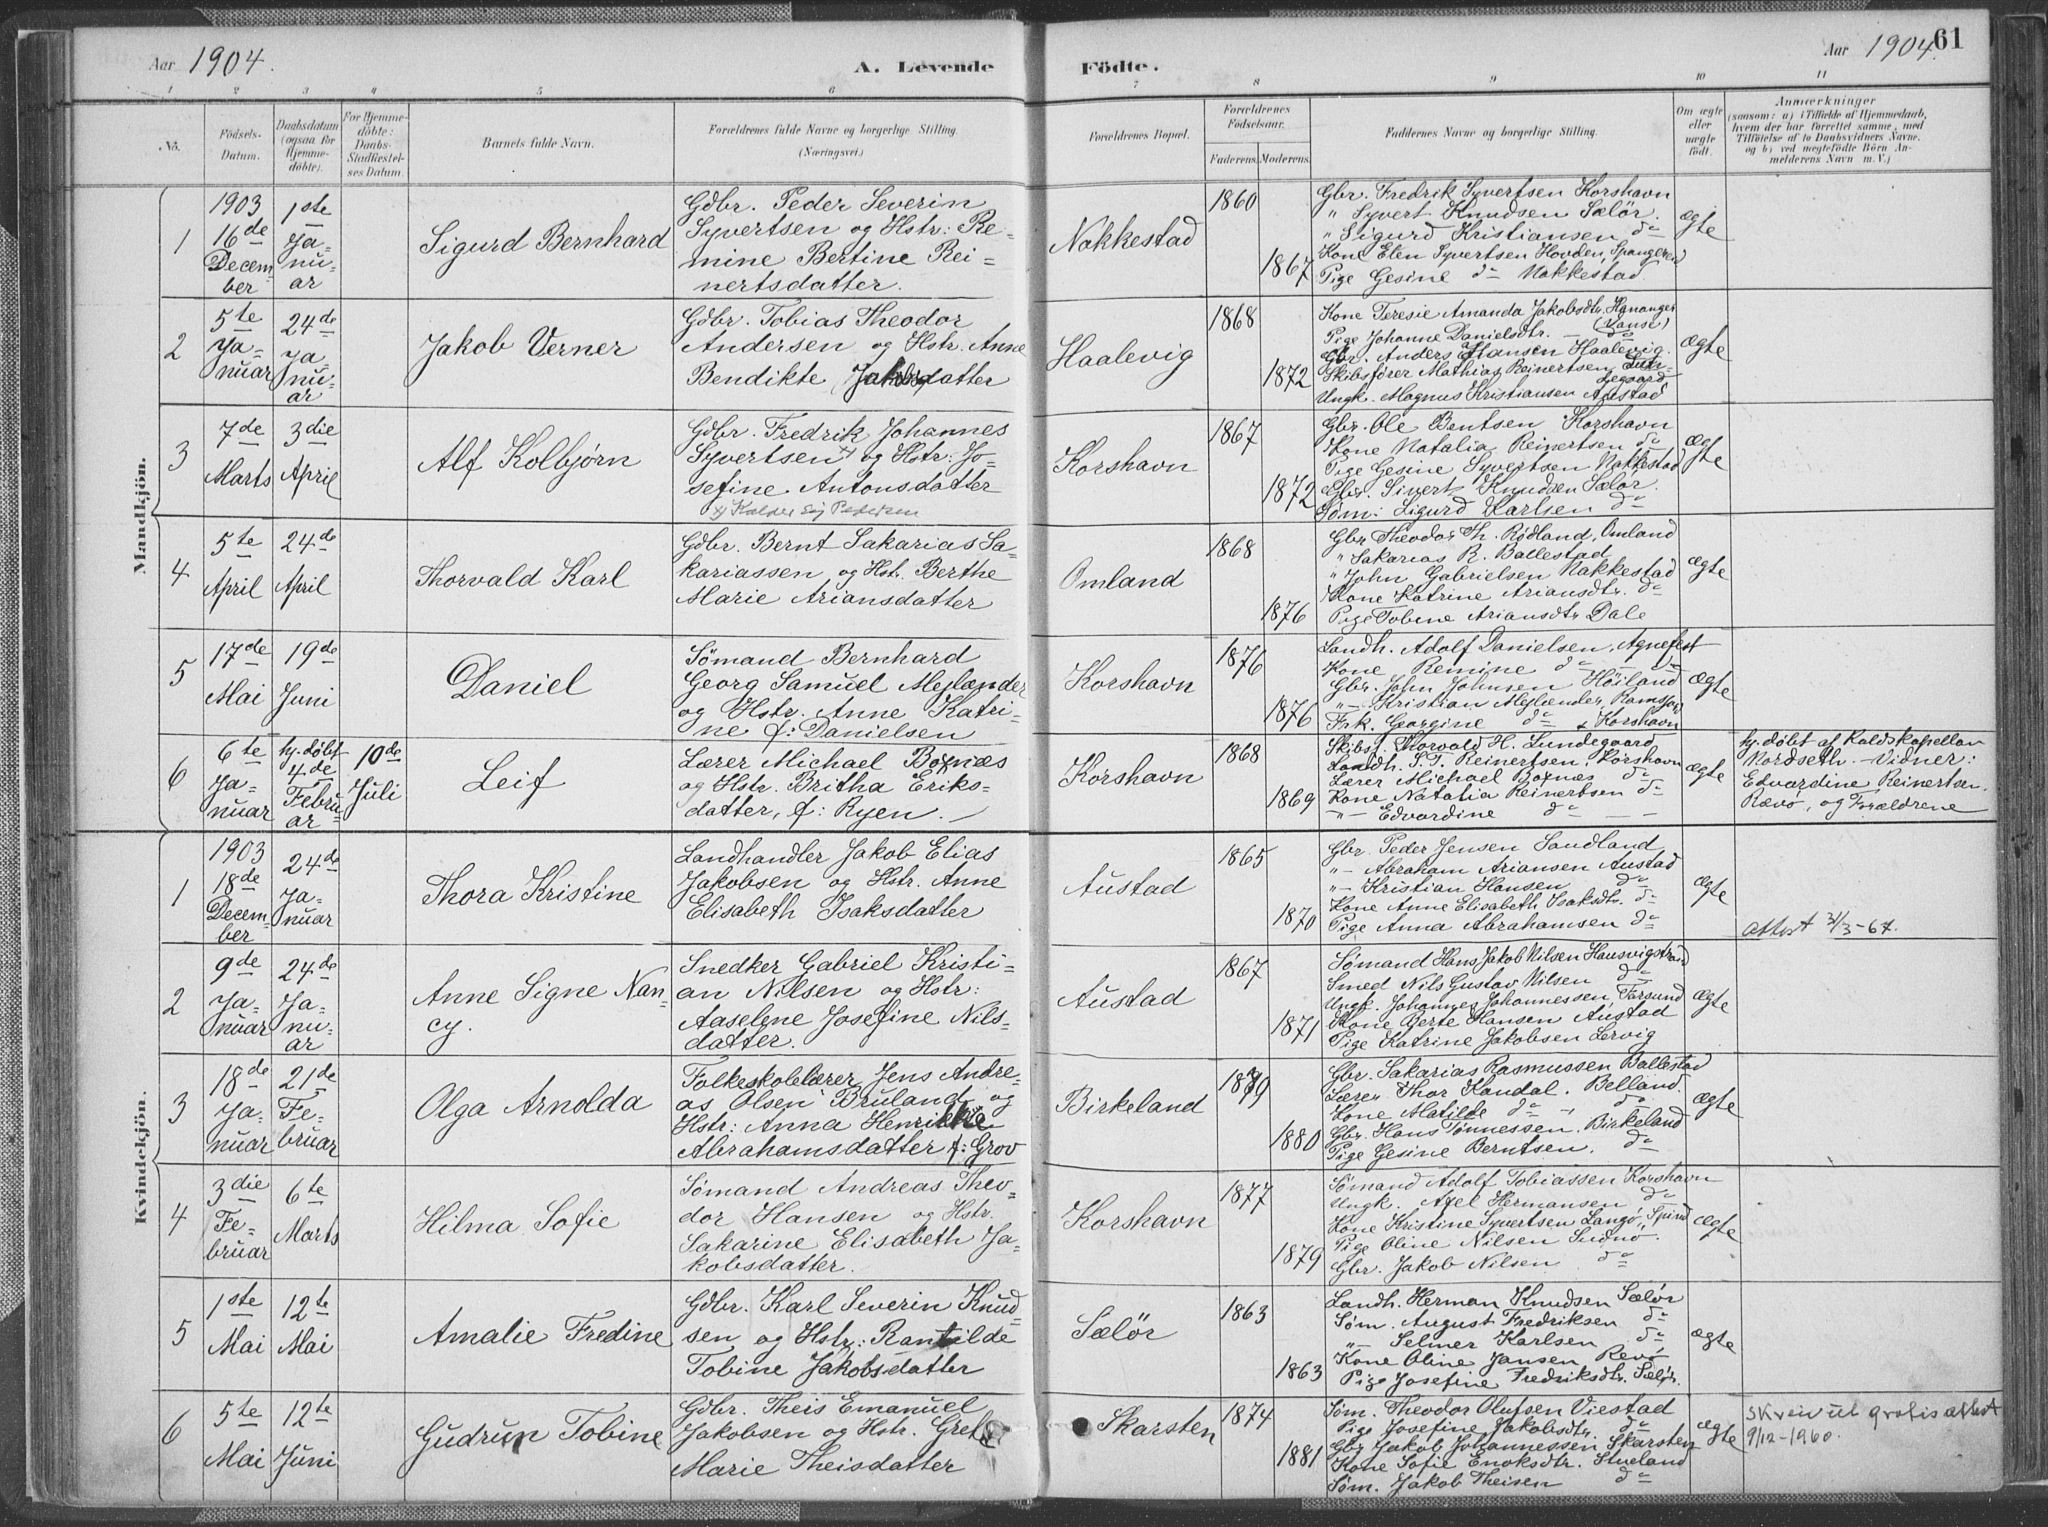 Aar 1904.
A. Levende Födte.
Aar 1904.
61
1 2 3 4 5 6 7 8 9 10 11
No.
Födsels-
Datum.
Daabsdatum
(ogsaa for
Hjemme-
döbte).
For Hjemme-
döbte:
Daabs-
Stadfæstel-
ses Datum.
Barnets fulde Navn.
Forældrenes fulde Navne og borgerlige Stilling.
(Næringsvei.)
Forældrenes Bopæl.
Forældrenes
Födselsaar.
Faderens. Moderens.
Faddernes Navne og borgerlige Stilling.
Om ægte
eller
uægte
födt.
Anmærkninger
(saasom: a) i Tilfælde af Hjemmedaab,
hvem der har forrettet samme, med
Tilföielse af to Daabsvidners Navne,
og b) ved uægtefödte Börn An-
melderens Navn m. V.)
Mandkjön.
1
1903
16de
Decem-
ber
1ste
Ja-
nu-
ar
Sigurd Bernhard
Gdbr. Peder Severin
Syvertsen og Hstr: Re-
mine Bertine Rei-
nertsdatter.
Nakkestad
1860
1867
Gbr. Fredrik Syvertsen Korshavn
" Syvert Knudsen Sælör.
" Sigurd Kristiansen do
Kone Elen Syvertsen Hovden, Spangereid
Pige Gesine do Nakkestad
ægte
2
5te
Ja-
nuar
24de
Ja
nu-
ar
Jakob Verner
Gdbr. Tobias Theodor
Andersen og Hstr. Anne
Bendikte Jakobsdatter
Haalevig
1868
1872
Kone Teresie Amanda Jakobsdtr. Hananger
(Vanse)
Pige Johanne Danielsdtr. — do
Gbr. Anders Hansen Haalevig.
Skibsfører Mathias Reinertsen Lun-
degaard
Ungk. Magnus Kristiansen Austad
ægte
3
7de
Marts
3die
April
Alf Kolbjørn
Gdbr. Fredrik Johannes
Syvertsen x) og Hstr: Jo-
sefine Antonsdatter
x) Kalder sig Pedersen
Korshavn
1867
1872
Gbr. Ole Bentsen Korshavn
Kone Natalia Reinertsen do
Pige Gesine Syvertsen Nakkestad
Gbr. Sivert Knudsen Sælör.
Søm: Sigurd Karlsen do
ægte
4
5te
April
24de
April
Thorvald Karl
Gdbr. Bernt Sakarias Sa-
kariassen og Hstr. Berthe
Marie Ariansdatter
Omland
1868
1876
Gbr Theodor Th. Rødland, Omland
" Sakarias R. Ballestad
" John Gabrielsen Nakkestad
Kone Katrine Ariansdtr. do
Pige Tobine Ariansdtr Dale
ægte
5
17de
Mai
19de
Juni
Daniel
Sömand Bernhard
Georg Samuel Mejlænder
og Hstr. Anne Katri-
ne f: Danielsen
Korshavn
1876
1876
Landh. Adolf Danielsen, Agnefest
Kone Remine do do
Gbr. John Johnsen Höiland
" — Kristian Mejlænder,
Frk. Georgine do Korshavn
ægte
6
6te
Ja-
nuar
hj. døbt
4de
Febru
ar
10de
Juli
Leif
Lærer Michael Boknæs
og Hstr. Britha Eriks-
datter, f: Ryen. —
Korshavn
1868
1869
Skibsf. Thorvald H. Lundegaard
Landh. S. T. Reinertsen Korshavn
Lærer Michael Boknæs do
Kone Natalia Reinertsen do
— " — Edvardine do — —
ægte
hj. døbt af Kaldskapellan
Nordseth. Vidner:
Edvardine Reinertsen
Rævø, og Forældrene
Kvindekjön.
1
1903
18de
Decem-
ber
24de
Ja-
nuar
Thora Kristine
Landhandler Jakob Elias
Jakobsen og Hstr. Anne
Elisabeth Isaksdatter
Austad
1865
1870
Gbr. Peder Jensen Sandland
" — Abraham Ariansen Austad
" — Kristian Hansen do
Kone Anne Elisabeth Isaksdtr. do
Pige Anna Abrahamsen do
ægte
attest 31/3-67.
2
9de
Ja-
nuar
24de
Ja-
nu-
ar
Anne Signe Nan-
cy.
Snedker Gabriel Kristi-
an Nilsen og Hstr:
Aaselene Josefine Nils-
datter.
Austad
1867
1871
Sømand Hans Jakob Nilsen Hausvigstrand
Smed Nils Gustav Nilsen do
Ungk. Johannes Johannessen, Farsund
Kone Berte Hansen Austad
Pige Katrine Jakobsen Lervig
ægte
3
18de
Ja-
nuar
21de
Fe-
bruar
Olga Arnolda
Folkeskolelærer Jens Andre-
as Olsen Bruland og
Hstr: Anna Henrikke
Abrahamsdatter f: Grov
Birkeland
1879
1880
Gbr. Sakarias Rasmussen Ballestad
Lærer Thor Kandal. Belland.
Kone Matilde do do
Gbr. Hans Tønnessen. Birkeland
Pige Gesine Berntsen. do
ægte
4
3die
Fe-
bruar
6te
Marts
Hilma Sofie
Sömand Andreas Theo-
dor Hansen og Hstr.
Sakarine Elisabeth Ja-
kobsdatter.
Korshavn
1877
1879
Sömand Adolf Tobiassen Korshavn
Ungk. Axel Hermansen do
Kone Kristine Syvertsen Langö, Spind
Pige Oline Nilsen
Gbr. Jakob Nilsen do
ægte
5
1ste
Mai
12te
Mai
Amalie Fredine
Gdbr. Karl Severin Knud
sen og Hstr: Rantilde
Tobine Jakobsdatter
Sælör
1863
1863
Landh. Herman Knudsen Sælör
Søm. August Fredriksen do
" — Selmer Karlsen do
Kone Oline Jansen Revö
Pige Josefine Fredriksdtr. Sælör.
ægte
6
5te
Mai
12te
Juni
Gudrun Tobine
Gdbr. Theis Emanuel
Jakobsen og Hstr. Grete
Marie Theisdatter
Skarsten
1874
1881
Søm. Theodor Olufsen Viestad
Pige Josefine Jakobsdtr. do
Gbr Jakob Johannessen Skarsten
Kone Sofie Enoksdtr. Stueland
Søm. Jakob Theisen do
ægte
Skrevet ut gratis attest
9/12-1960.